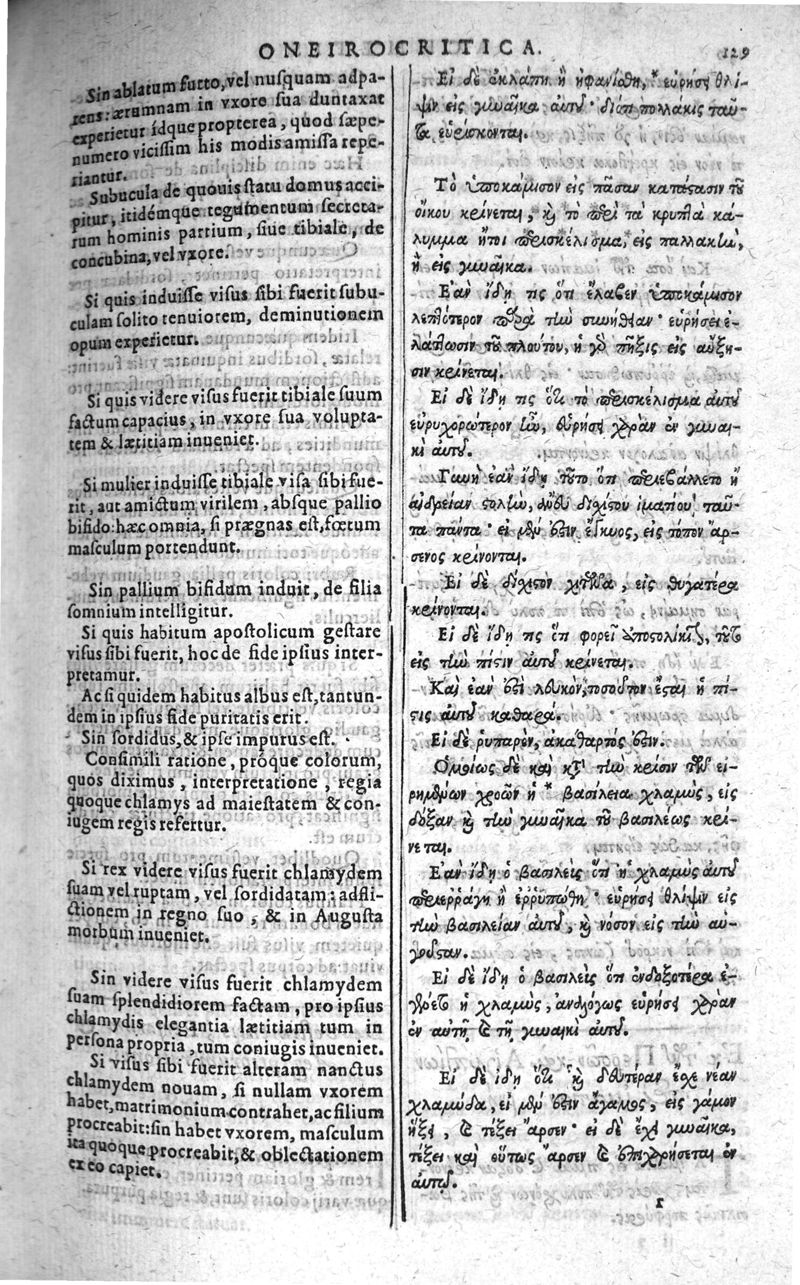 ONEIROCRITICA.
129
Sin ablatum furto, vel nusquam adpa-
rens: ærumnam in vxore sua duntaxat
experietur idque propterea, quod sæpe-
numero vicissim his modis amissa repe-
riantur.
Subucula de quouis statu domus acci-
pitur, itidémque tegumentum secreta-
rum hominis partium, siue tibiale, de
concubina, vel vxore.
Si quis induisse visus sibi fuerit subu-
culam solito tenuiorem, deminutionem
opum experietur.
Si quis videre visus fuerit tibiale suum
factum capacius, in vxore sua volupta-
tem & lætitiam inueniet.
Si mulier induisse tibiale visa sibi fue-
rit, aut amictum virilem, absque pallio
bifido: hæc omnia, si prægnas est, fœtum
masculum portendunt.
Sin pallium bifidum induit, de filia
somnium intelligitur.
Si quis habitum apostolicum gestare
visus sibi fuerit, hoc de fide ipsius inter-
pretamur.
Ac si quidem habitus albus est, tantun-
dem in ipsius fide puritatis erit.
Sin sordidus, & ipse impurus est.
Consimili ratione, próque colorum,
quos diximus, interpretatione, regia
quoque chlamys ad maiestatem & con-
iugem regis refertur.
Si rex videre visus fuerit chlamydem
suam vel ruptam, vel sordidatam: adfli-
ctionem in regno suo, & in Augusta
morbum inueniet.
Sin videre visus fuerit chlamydem
suam splendidiorem factam, pro ipsius
chlamydis elegantia lætitiam tum in
persona propria, tum coniugis inueniet.
Si visus sibi fuerit alteram nanctus
chlamydem nouam, si nullam vxorem
habet, matrimonium contrahet, ac filium
procreabit: sin habet vxorem, masculum
ita quoque procreabit, & oblectationem
ex eo capiet.
Εἰ δὲ ἐκλάπη ἢ ἠφανίσθη, * εὑρήσει θλί-
ψιν εἰς γυναῖκα αὐτοῦ· διότι πολλάκις ταῦ-
τα εὑρίσκονται.
Τὸ ὑποκάμισον εἰς πᾶσαν κατάστασιν τοῦ
οἴκου κρίνεται, καὶ τὸ περὶ τὰ κρυπτὰ κά-
λυμμα ἤτοι περισκέλισμα, εἰς παλλακὴν,
ἢ εἰς γυναῖκα.
Ἐὰν ἴδῃ τις ὅτι ἔλαβεν ὑποκάμισον
λεπτότερον παρὰ τὴν συνήθειαν· εὑρήσει ἐ-
λάττωσιν τοῦ πλούτου, ἡ γὰρ πῆξις εἰς αὔξη-
σιν κρίνεται.
Εἰ δὲ ἴδῃ τις ὅτι τὸ περισκέλισμα αὐτοῦ
εὐρυχορώτερον ἦν, εὑρήσει χαρὰν ἐν γυναι-
κὶ αὐτοῦ.
Γυνὴ ἐὰν ἴδῃ τοῦτο ὅτι περιεβάλλετο ἢ
ἀνδρείαν στολὴν, ἄνευ διχίτου ἱματίου ταῦ-
τα πάντα· εἰ μέν ἐστιν ἔγκυος, εἰς τόπον ἄρ-
σενος κρίνονται.
Εἰ δὲ διχιτον χιτῶνα, εἰς θυγατέρα
κρίνονται.
Εἰ δὲ ἴδῃ τις ὅτι φορεῖ ἀποστολικὰ, τοῦτο
εἰς τὴν πίστιν αὐτοῦ κρίνεται.
Καὶ ἐὰν ἐστὶ λευκὸν, τοσοῦτον ἔσται ἡ πί-
στις αὐτοῦ καθαρά.
Εἰ δὲ ῥυπαρὸν, ἀκάθαρτός ἐστιν.
Ὁμοίως δὲ καὶ κατὰ τὴν κρίσιν τῶν εἰ-
ρημένων χροῶν ἡ * βασίλεια χλαμὺς, εἰς
δόξαν καὶ τὴν γυναῖκα τοῦ βασιλέως κρί-
νεται.
Ἐὰν ἴδῃ ὁ βασιλεὺς ὅτι ἡ χλαμὺς αὐτοῦ
περιερράγη ἢ ἐρρυπώθη· εὑρήσει θλίψιν εἰς
τὴν βασιλείαν αὐτοῦ, καὶ νόσον εἰς τὴν αὐ-
γοῦσταν.
Εἰ δὲ ἴδῃ ὁ βασιλεὺς ὅτι ἐνδοξοτέρα ἐ-
γένετο ἡ χλαμὺς, ἀναλόγως εὑρήσει χαρὰν
ἐν αὐτῇ καὶ τῇ γυναικὶ αὐτοῦ.
Εἰ δὲ ἴδῃ ὅτι καὶ δευτέραν ἔσχε νέαν
χλαμύδα, εἰ μέν ἐστιν ἄγαμος, εἰς γάμον
ἥξει, καὶ τέξει ἄρσεν· εἰ δὲ ἔχει γυναῖκα,
τέξει καὶ οὕτως ἄρσεν καὶ ἐπιχαρήσεται ἐν
αὐτῷ.
r